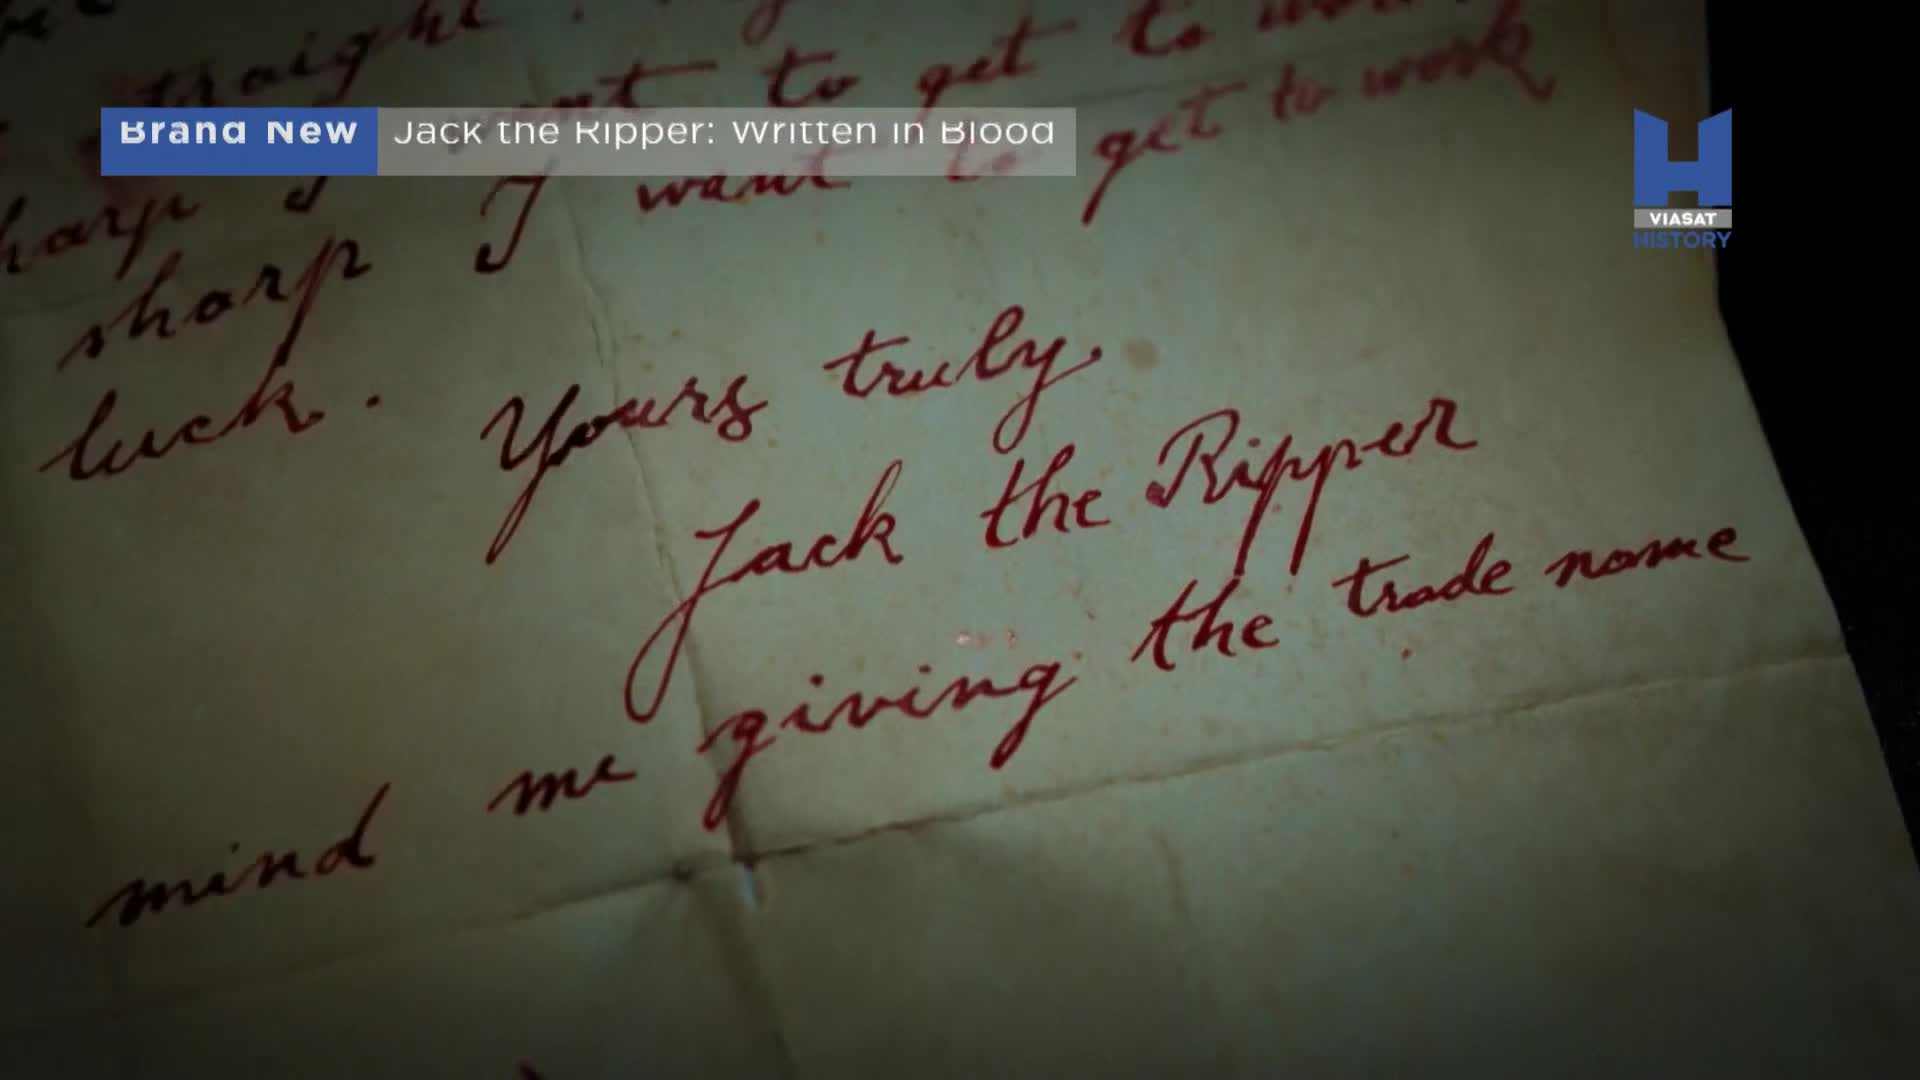 straight.
to get to
Brand New Jack the Ripper: Written in Blood
sharp I want to get to work
luck. Yours truly.
Jack the Ripper
mind me giving the trade name
VIASAT
HISTORY